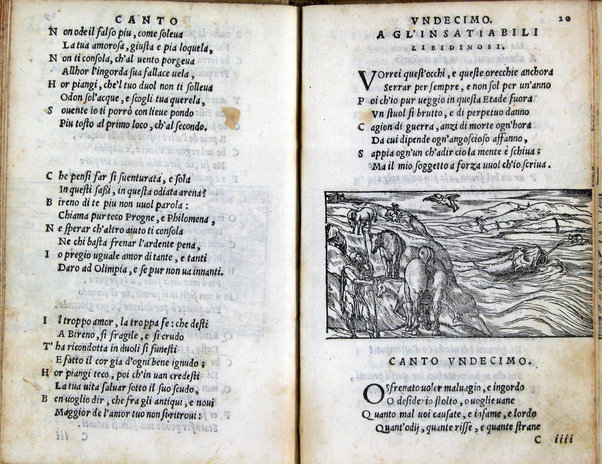 CANTO
Non ode il falso piu, come soleua
La tua amorosa, giusta e pia loquela,
Non ti consola, ch'al uento porgeua
Allhor l'ingorda sua fallace uela,
Hor piangi, che'l tuo duol non ti solleua
Odon sol'acque, e scogli tua querela,
Souente io ti porrò con lieue pondo
Piu tosto al primo loco, ch'al secondo.
Che pensi far si suenturata, e sola
In questi sassi, in questa odiata arena?
Bireno di te piu non uuol parola:
Chiama pur teco Progne, e Philomena,
Ne sperar ch'altro aiuto ti consola
Ne chi basta frenar l'ardente pena,
Io pregio uguale amor di tante, e tanti
Daro ad Olimpia, e se pur non ua innanti.
Il troppo amor, la troppa fe: che desti
A Bireno, si fragile, e si crudo
T'ha ricondotta in duoli si funesti
E fatto il cor gia d'ogni bene ignudo;
Hor piangi teco, poi ch'in uan credesti
La tua uita saluar sotto il suo scudo,
Ben uoglio dir, che fra gli antiqui, e noui
Maggior de l'amor tuo non si ritroui:
iii
VNDECIMO. 20
AGL'INSATIABILI
LIBIDINOSI.
Vorrei quest'occhi, e queste orecchie anchora
Serrar per sempre, e non sol per un'anno
Poi ch'io pur ueggio in questa Etade fuora
Vn stuol si brutto, e di perpetuo danno
Cagion di guerra, anzi di morte ogn'hora
Da cui dipende ogn'angoscioso affanno,
Sappia ogn'un ch'a dir cio la mente è schiua;
Ma il mio soggetto a forza uuol ch'io scriua.
CANTO VNDECIMO.
O sfrenato uoler maluagio, e ingordo
O desiderio stolto, o uoglie uane
Quanto mal uoi causate, e infame, e lordo
Quant'odij, quante risse, e quante strane
C iiii